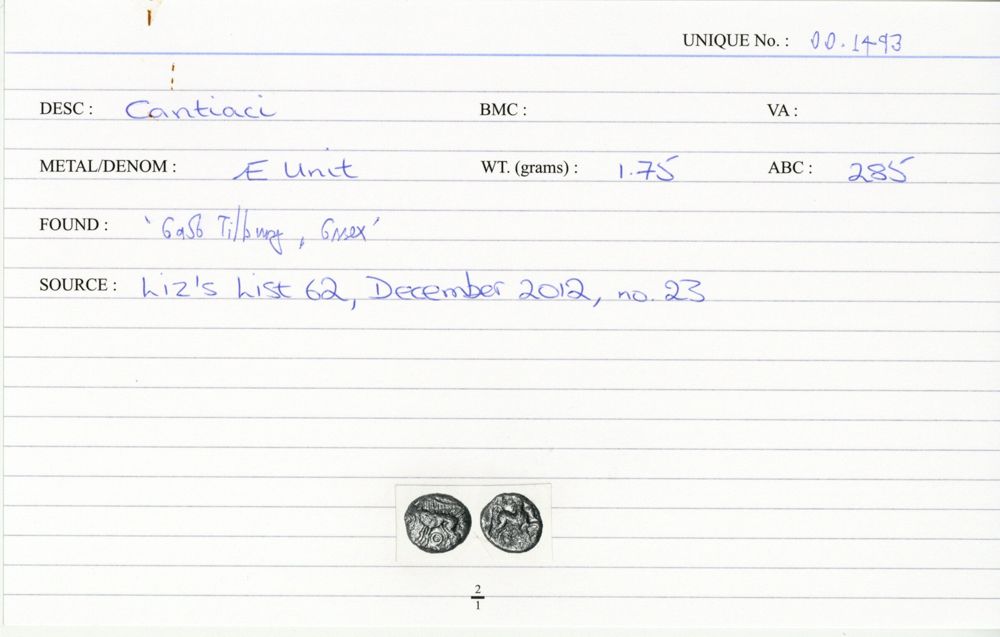 UNIQUE No. : 00.1493
DESC : Cantiaci BMC : VA :
METAL/DENOM : Æ Unit WT. (grams) : 1.75 ABC : 285
FOUND : 'East Tilbury, Essex'
SOURCE : Liz's List 62, December 2012, no. 23
2
1